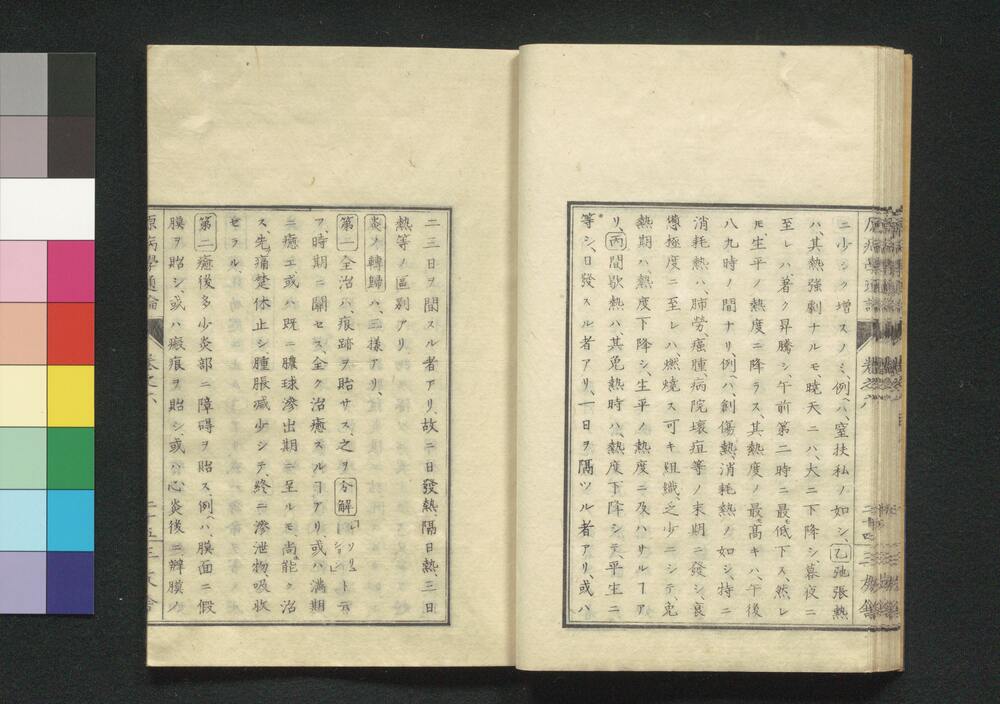 ニ少シク増スノミ、例ヘハ、窒扶私ノ如シ、乙弛張熱
ハ、其熱強劇ナルモ、曉天ニハ、大ニ下降シ、暮夜ニ
至レハ、著ク昇騰シ、午前第二時ニ最低下ス、然レ
𪜈、生平ノ熱度ニ降ラス、其熱度ノ最高キハ、午後
八九時ノ間ナリ、例ヘハ、創傷熱、消耗熱ノ如シ、特ニ
消耗熱ハ、肺勞、癌腫、病院壞疽等ノ末期ニ發シ、衰
憊極度ニ至レハ、燃燒ス可キ組織、之少ニシテ、免
熱期ハ、熱度下降シ、生平ノ熱度ニ及ハサルヿア
リ、丙間歇熱ハ、其免熱時ハ、熱度下降シテ、平生ニ
等シ、日發スル者アリ、一日ヲ隔ツル者アリ、或ハ
二三日ヲ間スル者アリ、故ニ日發熱、隔日熱、三日
熱等ノ區別アリ、
炎ノ轉歸ハ、三樣アリ、
第一全治ハ、痕跡ヲ貽サス、之ヲ分解「レソリューション」ト云
フ、時期ニ關セス、全ク治癒スルヿアリ、或ハ滿期
ニ癒エ、或ハ既ニ膿球滲出期ニ至ルモ、尚能ク治
ス、先ツ痛楚休止シ、腫脹減少シテ、終ニ滲泄物、吸收
セラル、
第二癒後多少炎部ニ障碍ヲ貽ス、例ヘハ、膜面ニ假
膜ヲ貽シ、或ハ瘢痕ヲ貽シ、或ハ心炎後ニ瓣膜ノ
原病學通論 卷之八